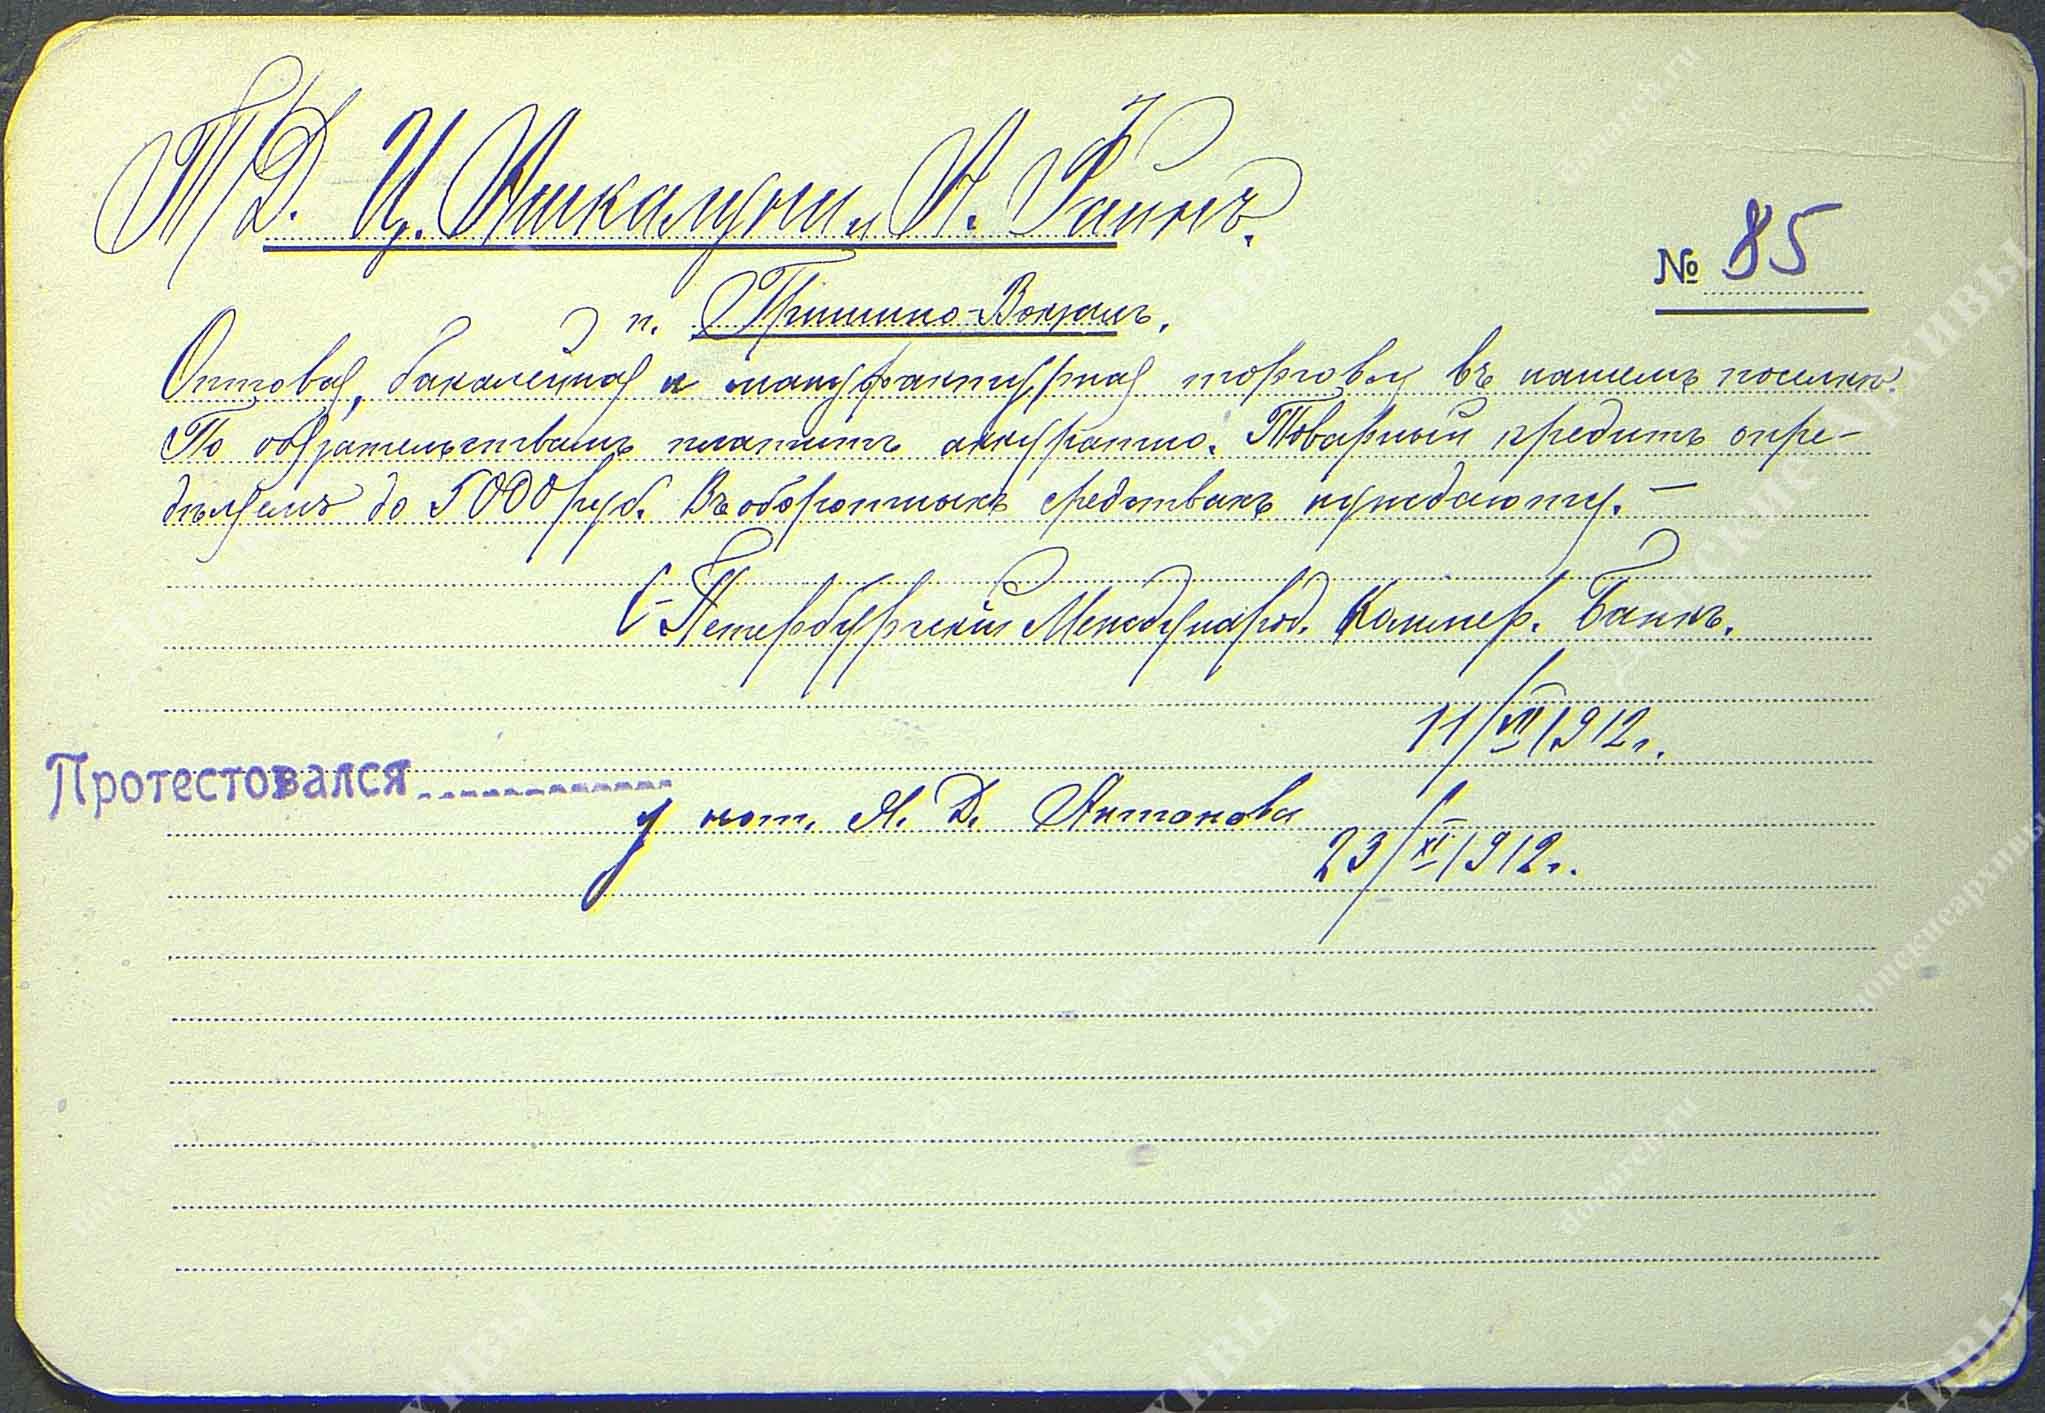 Т/Д. И. Ашкалуни и А. Файнъ.
№ 85
п. Гришино-Вокзалъ.
Оптовая, бакалейная и мануфактурная торговля въ нашемъ поселкѣ.
По обязательствамъ платитъ аккуратно. Товарный кредитъ опре-
дѣляемъ до 5000 руб. Въ оборотныхъ средствахъ нуждаются.—
С-Петербургскій Международ. Коммер. Банкъ.
11/VII 1912г.
Протестовался
у нот. Я. Д. Антонова
23/XI 1912г.